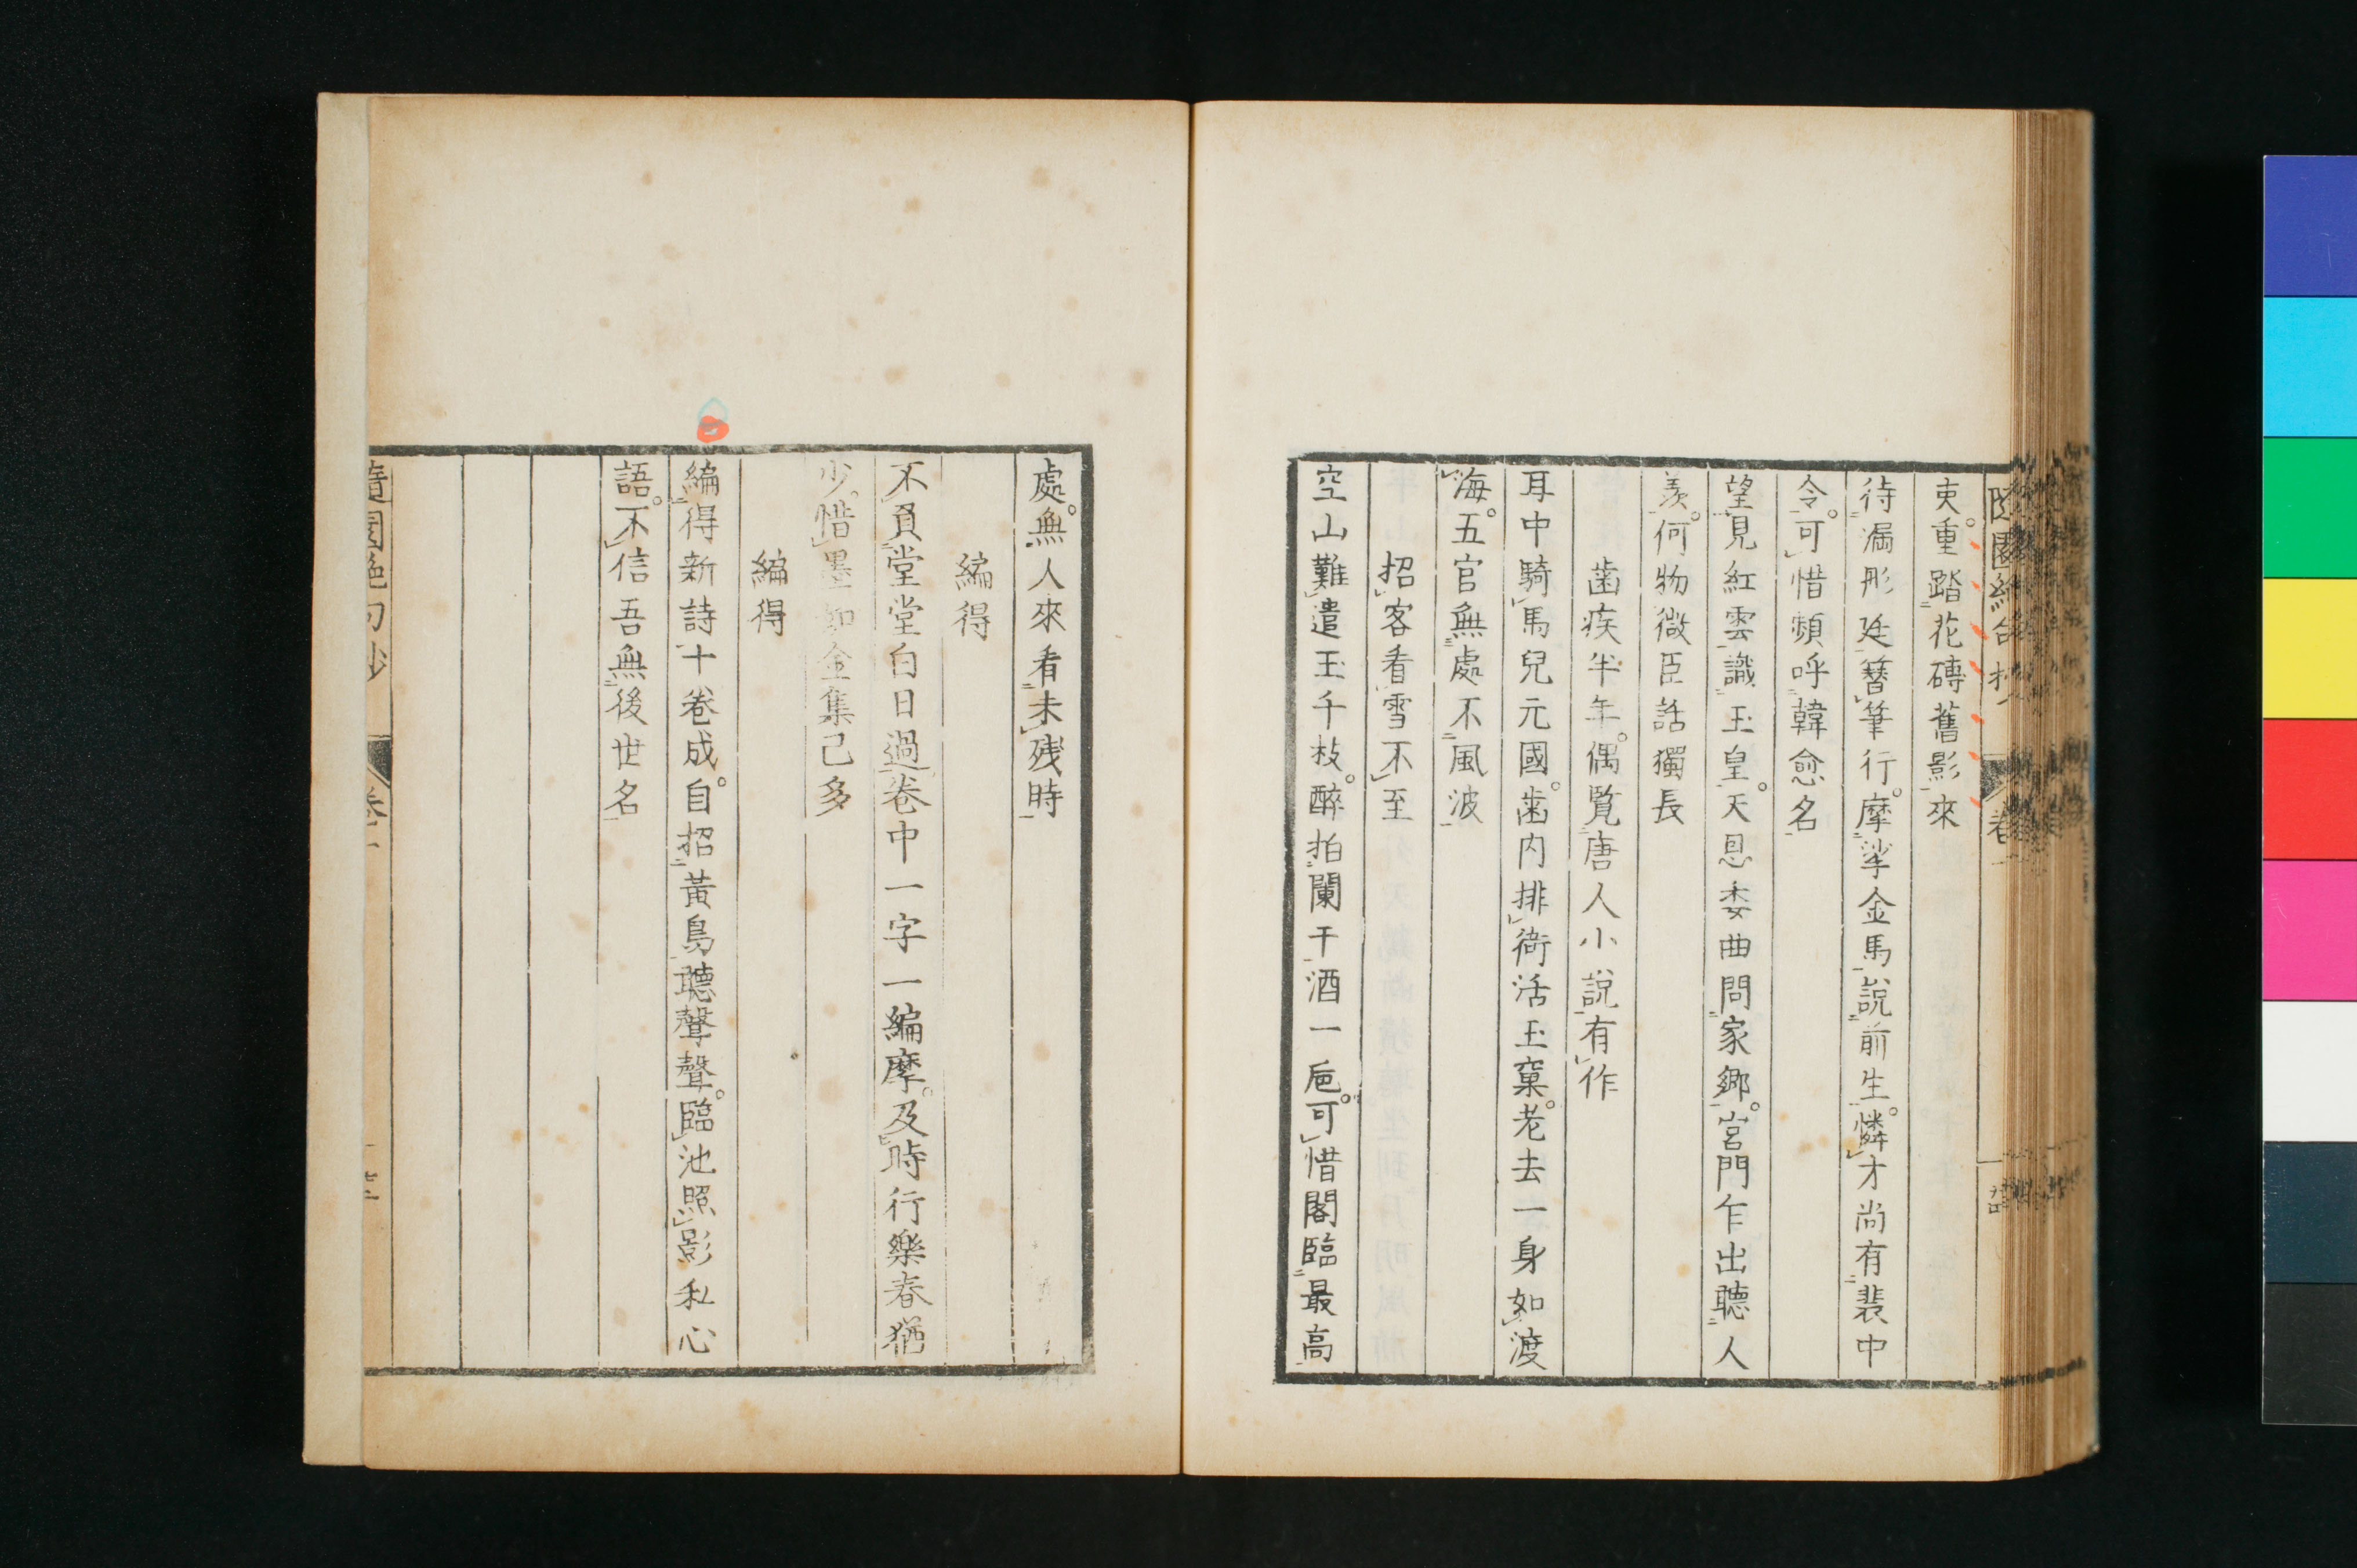 吏重踏花磚舊影來
待漏彤廷簪筆行摩挲金馬說前生憐才尚有裴中
令可惜頻呼韓愈名
望見紅雲識玉皇天恩委曲問家鄉宮門乍出聽人
羨何物微臣話獨長
齒疾半年偶覧唐人小說有作
耳中騎馬兒元國齒内排衙活玉窠老去一身如渡
海五官無處不風波
招客看雪不至
空山難遣玉千枝醉拍闌干酒一巵可惜閣臨最高
處無人來看未残時
編得
不負堂堂白日過卷中一字一編摩及時行樂春猶
少惜墨如金集已多
編得
編得新詩十卷成自招黃鳥聽聲聲臨池照影私心
語不信吾無後世名
隨園絶句抄 卷十